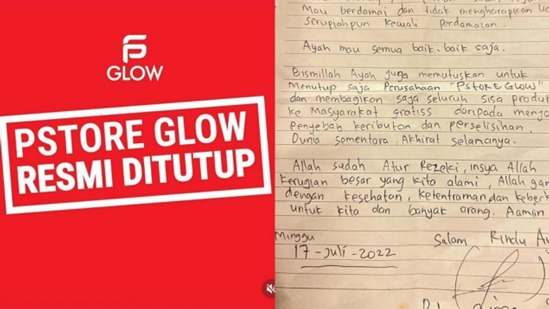 GLOW
PSTORE GLOW
RESMI DITUTUP
Mau berdamai dan tidak mengharapkan
serupiahpun kecuali perdamaian.
Ayah mau semua baik-baik saja.
Bismillah Ayah juga memutuskan untuk
Menutup saja Perusahaan "PSTORE GLOW"
dan membagikan saja seluruh sisa produk
ke Masyarakat gratiss daripada
Penyebab keributan dan perselisihan.
Dunia sementara, Akhirat selamanya.
Allah sudah Atur Rezeki, insya Allah
kerugian besar yang kita alami, Allah
dengan kesehatan, ketentraman dan
untuk kita dan banyak orang. Aamiin
Minggu
17-Juli-2022
Salam Rindu